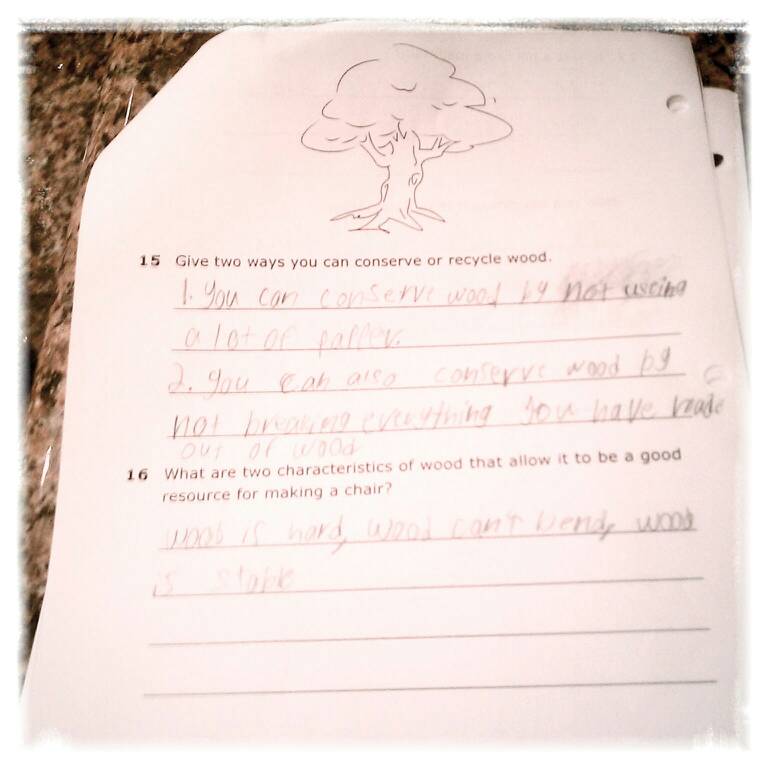 15 Give two ways you can conserve or recycle wood.
1. You can conserve wood by not useing
a lot of paper.
2. You can also conserve wood by
not breaking everything you have made
out of wood
16 What are two characteristics of wood that allow it to be a good
resource for making a chair?
wood is hard, wood can't bend, wood
is stable